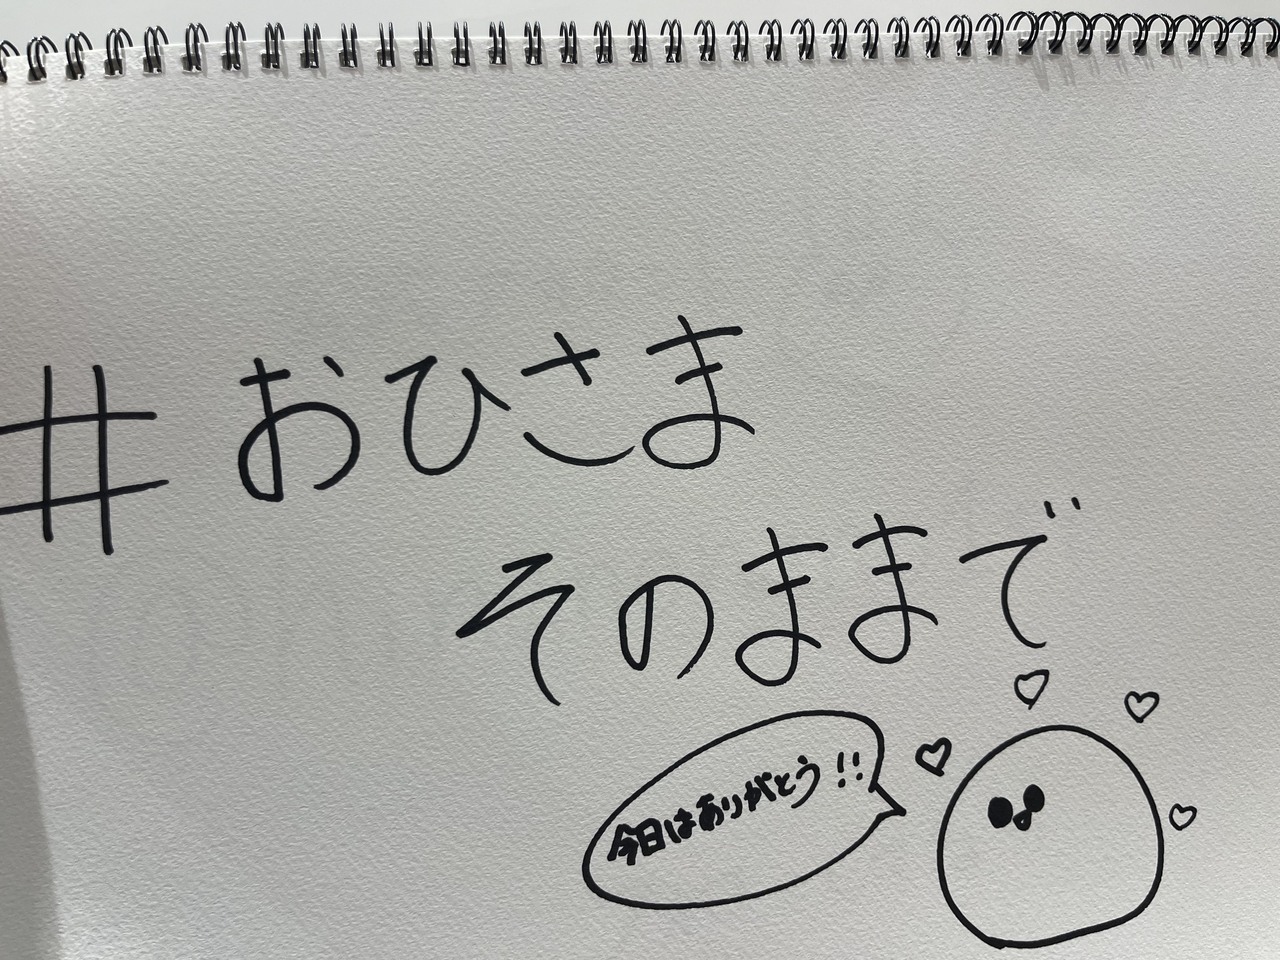 #おひさま
そのままで
今日はありがとう!!